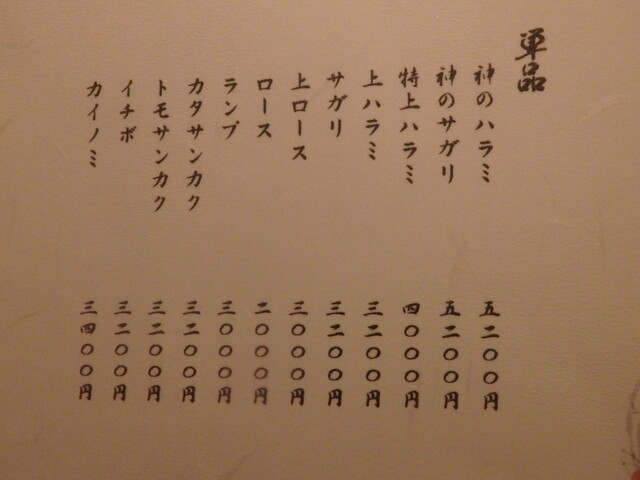 単品
神のハラミ 五二〇〇円
神のサガリ 五二〇〇円
特上ハラミ 四〇〇〇円
上ハラミ 三二〇〇円
サガリ 三二〇〇円
上ロース 三〇〇〇円
ロース 二〇〇〇円
ランプ 三〇〇〇円
カタサンカク 三二〇〇円
トモサンカク 三二〇〇円
イチボ 三二〇〇円
カイノミ 三四〇〇円